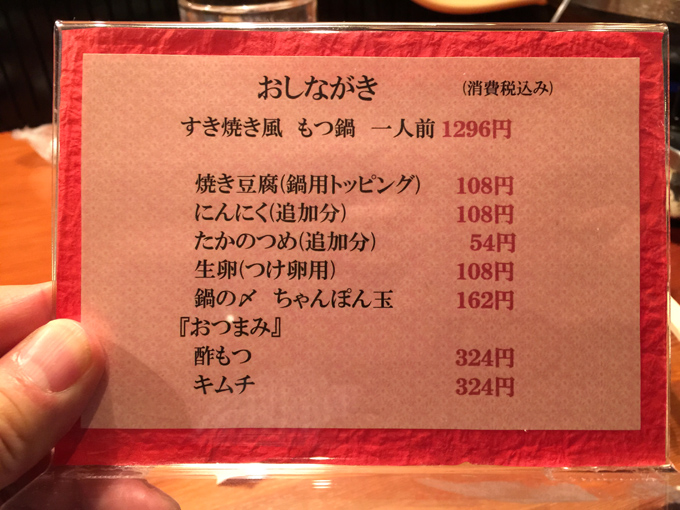 おしながき (消費税込み)
すき焼き風 もつ鍋 一人前 1296円
焼き豆腐(鍋用トッピング) 108円
にんにく(追加分) 108円
たかのつめ(追加分) 54円
生卵(つけ卵用) 108円
鍋の〆 ちゃんぽん玉 162円
『おつまみ』
酢もつ 324円
キムチ 324円